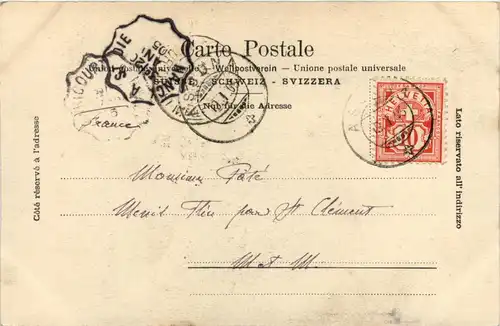 Carte Postale
Union postale universelle — Weltpostverein — Unione postale universale
SUISSE - SCHWEIZ - SVIZZERA
Nur für die Adresse
Côté réservé à l'adresse
Lato riservato all' indirizzo
France
HELVETIA
10
Monsieur Pâté
Menil Flin par St Clément
M et M.